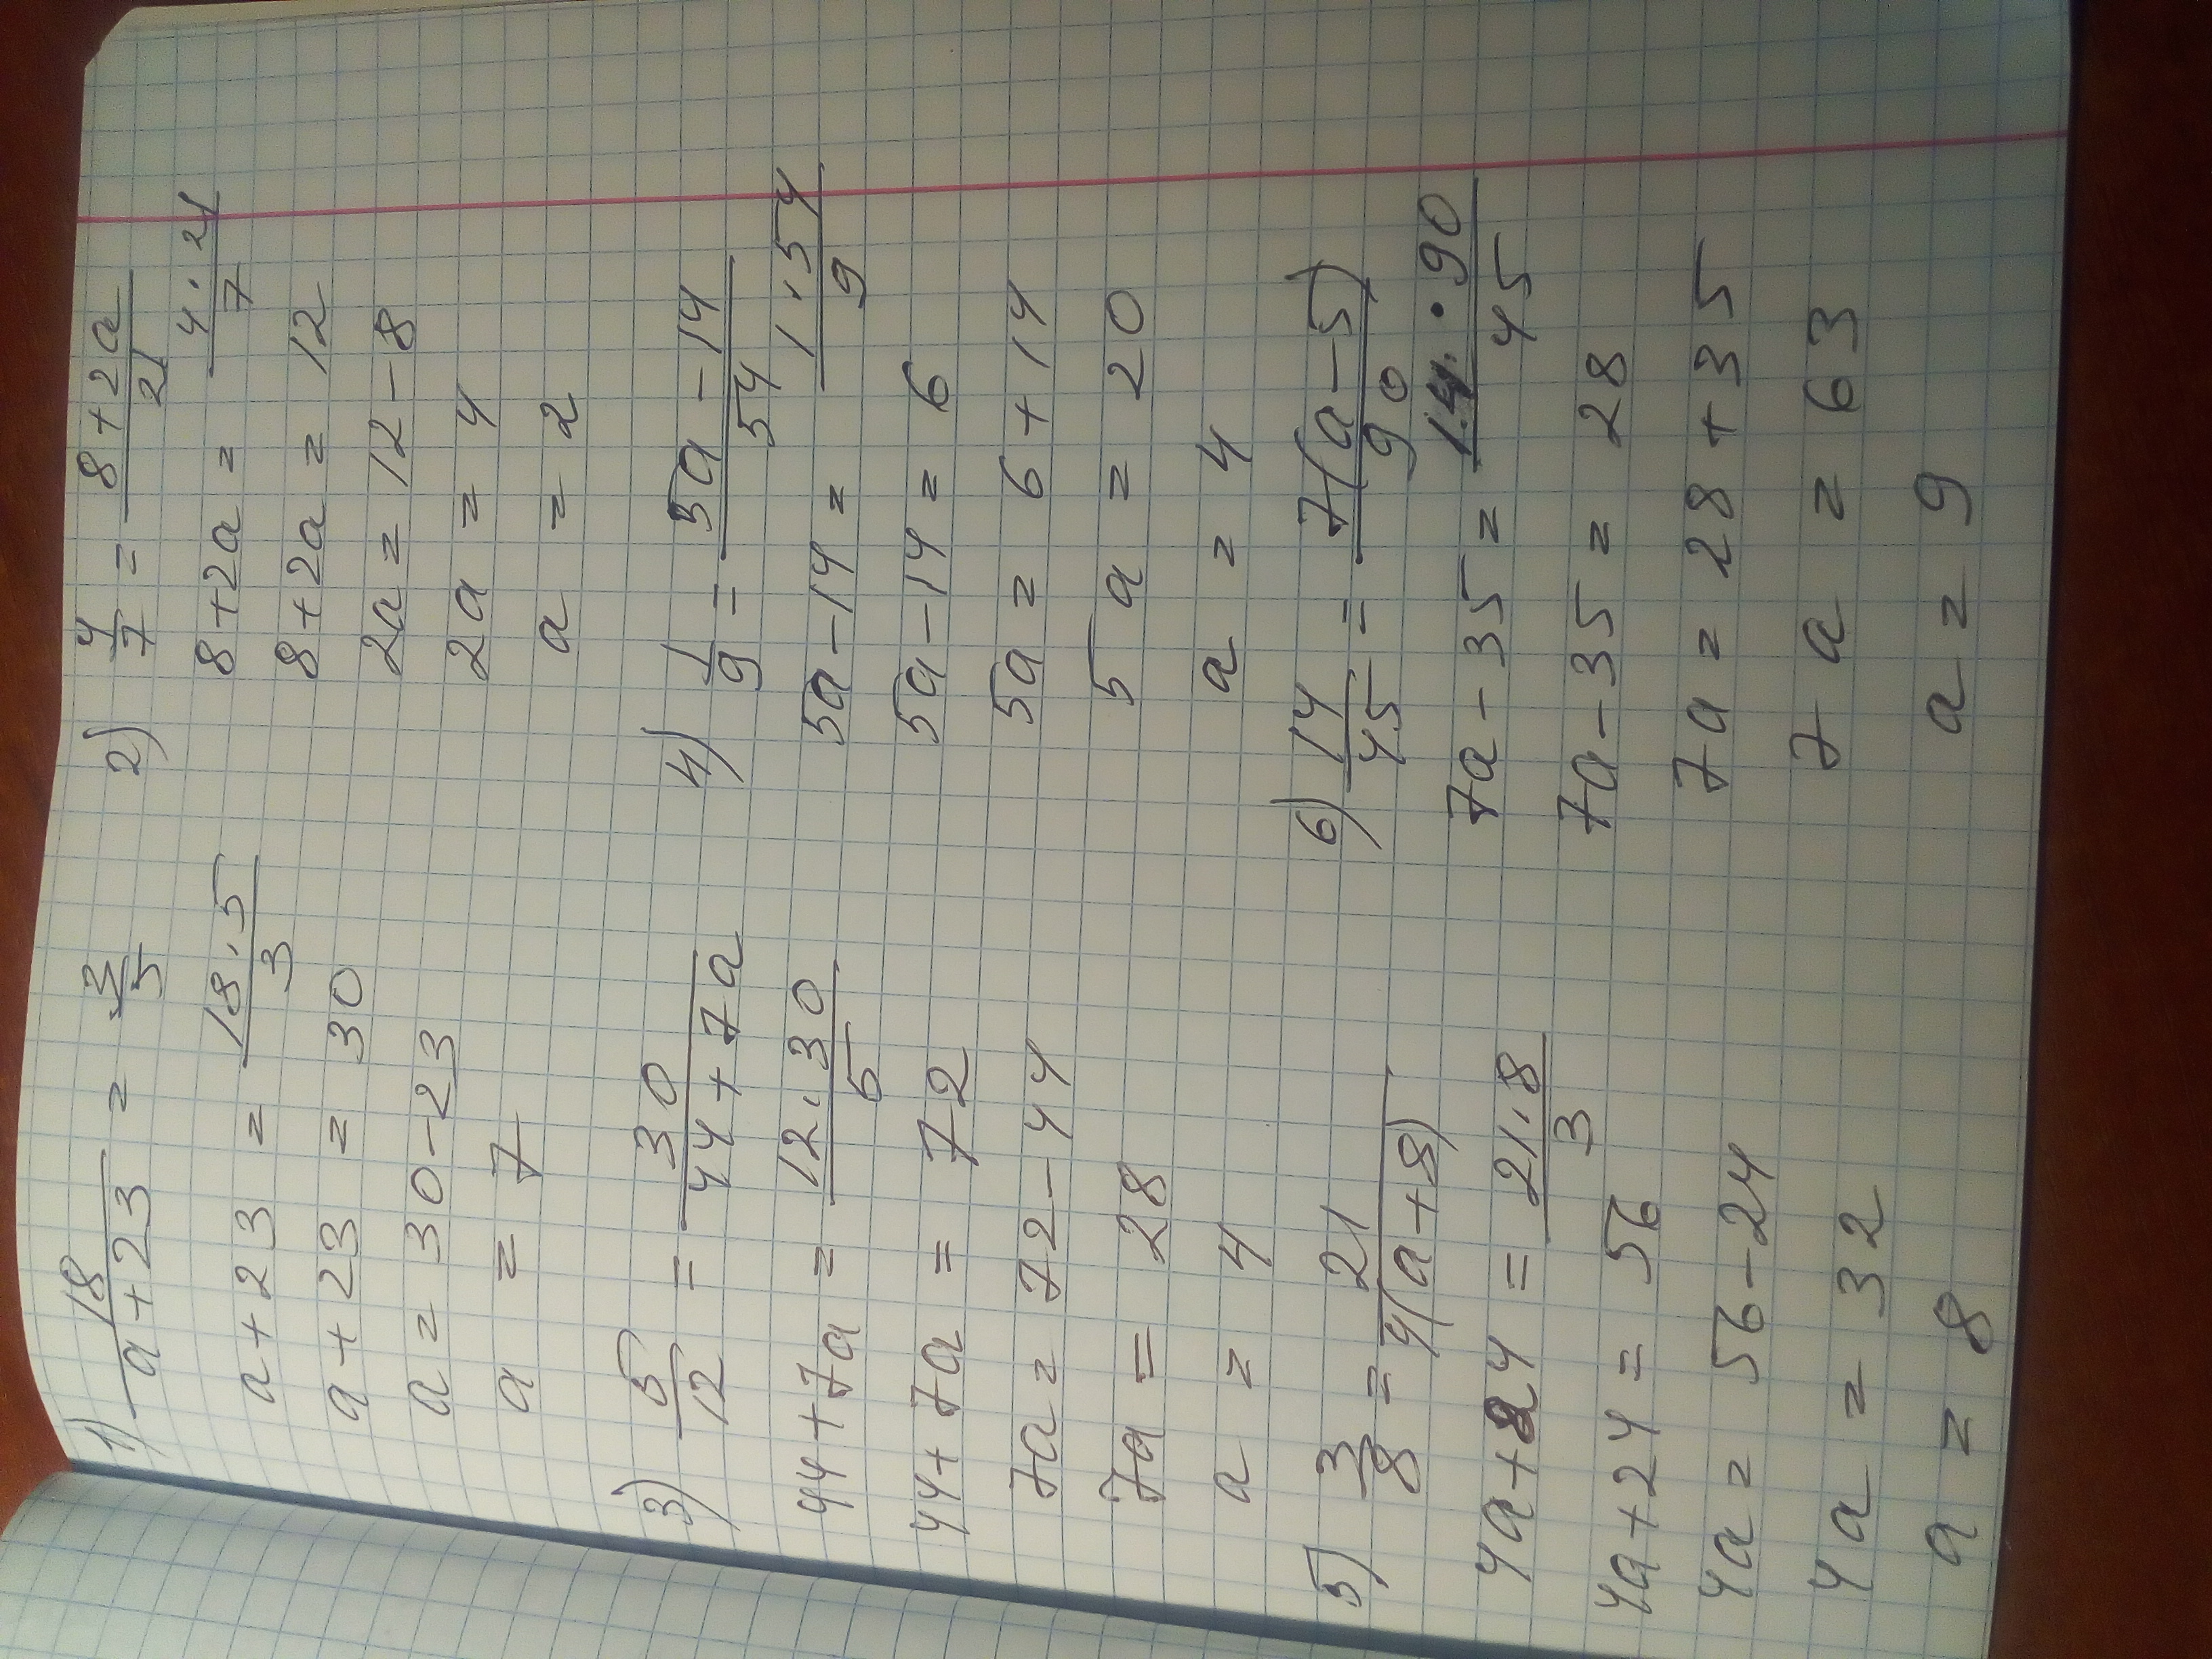 1) 18/(a+23) = 3/5
a+23 = 18·5/3
a+23 = 30
a = 30-23
a = 7
2) 4/7 = (8+2a)/21
8+2a = 4·21/7
8+2a = 12
2a = 12-8
2a = 4
a = 2
3) 5/12 = 30/(44+7a)
44+7a = 12·30/5
44+7a = 72
7a = 72-44
7a = 28
a = 4
4) 1/9 = (5a-14)/54
5a-14 = 1·54/9
5a-14 = 6
5a = 6+14
5a = 20
a = 4
5) 3/8 = 21/4(a+8)
4a+24 = 21·8/3
4a+24 = 56
4a = 56-24
4a = 32
a = 8
6) 14/45 = 7(a-5)/90
7a-35 = 14·90/45
7a-35 = 28
7a = 28+35
7a = 63
a = 9